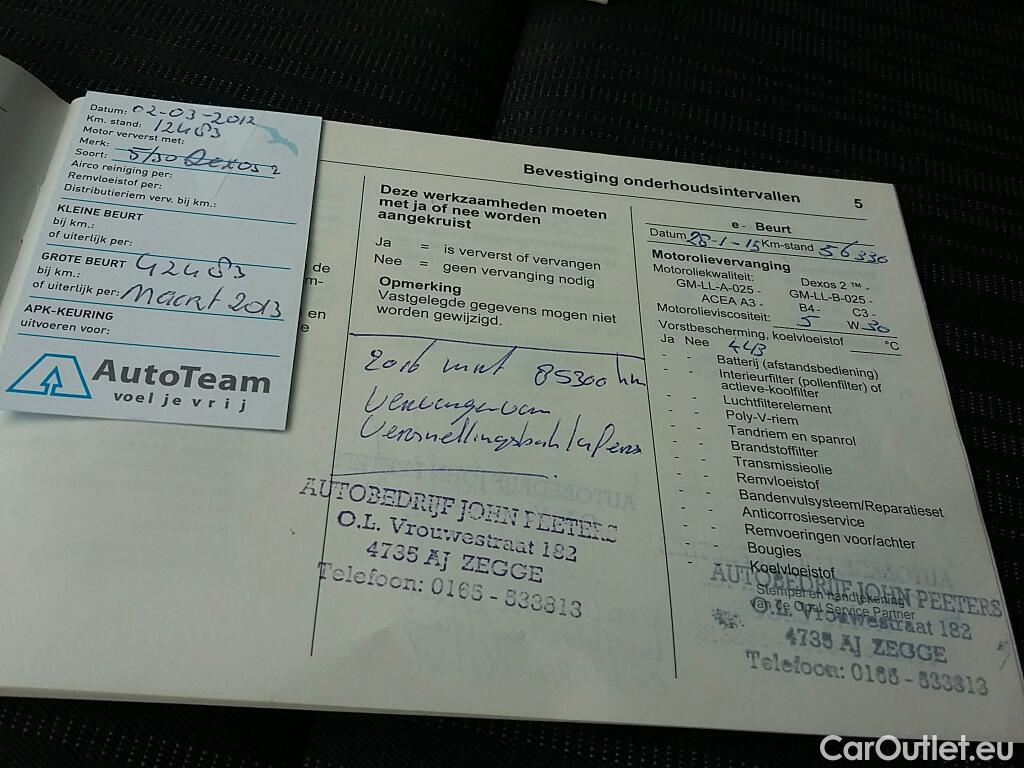 Datum: 02-03-2012
Km. stand: 12483
Motor ververst met:
Merk:
Soort: 5/30 Dexos 2
Airco reiniging per:
Remvloeistof per:
Distributieriem verv. bij km.:
KLEINE BEURT
bij km.:
of uiterlijk per:
GROTE BEURT
bij km.: 42483
of uiterlijk per: Maart 2013
APK-KEURING
uitvoeren voor:
AutoTeam
voel je vrij
de
m-
en
e
Bevestiging onderhoudsintervallen 5
Deze werkzaamheden moeten
met ja of nee worden
aangekruist
Ja = is ververst of vervangen
Nee = geen vervanging nodig
Opmerking
Vastgelegde gegevens mogen niet
worden gewijzigd.
2016 met 85300 km
Vervangen van
AUTOBEDRIJF JOHN PEETERS
O.L. Vrouwestraat 182
4735 AJ ZEGGE
Telefoon: 0165 - 533813
e - Beurt
Datum 28-1-15 Km-stand 56336
Motorolievervanging
Motoroliekwaliteit: Dexos 2 ™ -
GM-LL-A-025 - GM-LL-B-025 -
ACEA A3 - B4 - C3 -
Motorolieviscositeit: 5 W 30
Vorstbescherming, koelvloeistof °C
Ja Nee
- - Batterij (afstandsbediening)
- - Interieurfilter (pollenfilter) of
actieve-koolfilter
- - Luchtfilterelement
- - Poly-V-riem
- - Tandriem en spanrol
- - Brandstoffilter
- - Transmissieolie
- - Remvloeistof
- - Bandenvulsysteem/Reparatieset
- - Anticorrosieservice
- - Remvoeringen voor/achter
- - Bougies
- - Koelvloeistof
Stempel en handtekening
van de Opel Service Partner
AUTOBEDRIJF JOHN PEETERS
O.L. Vrouwestraat 182
4735 AJ ZEGGE
Telefoon: 0165 - 533813
CarOutlet.eu